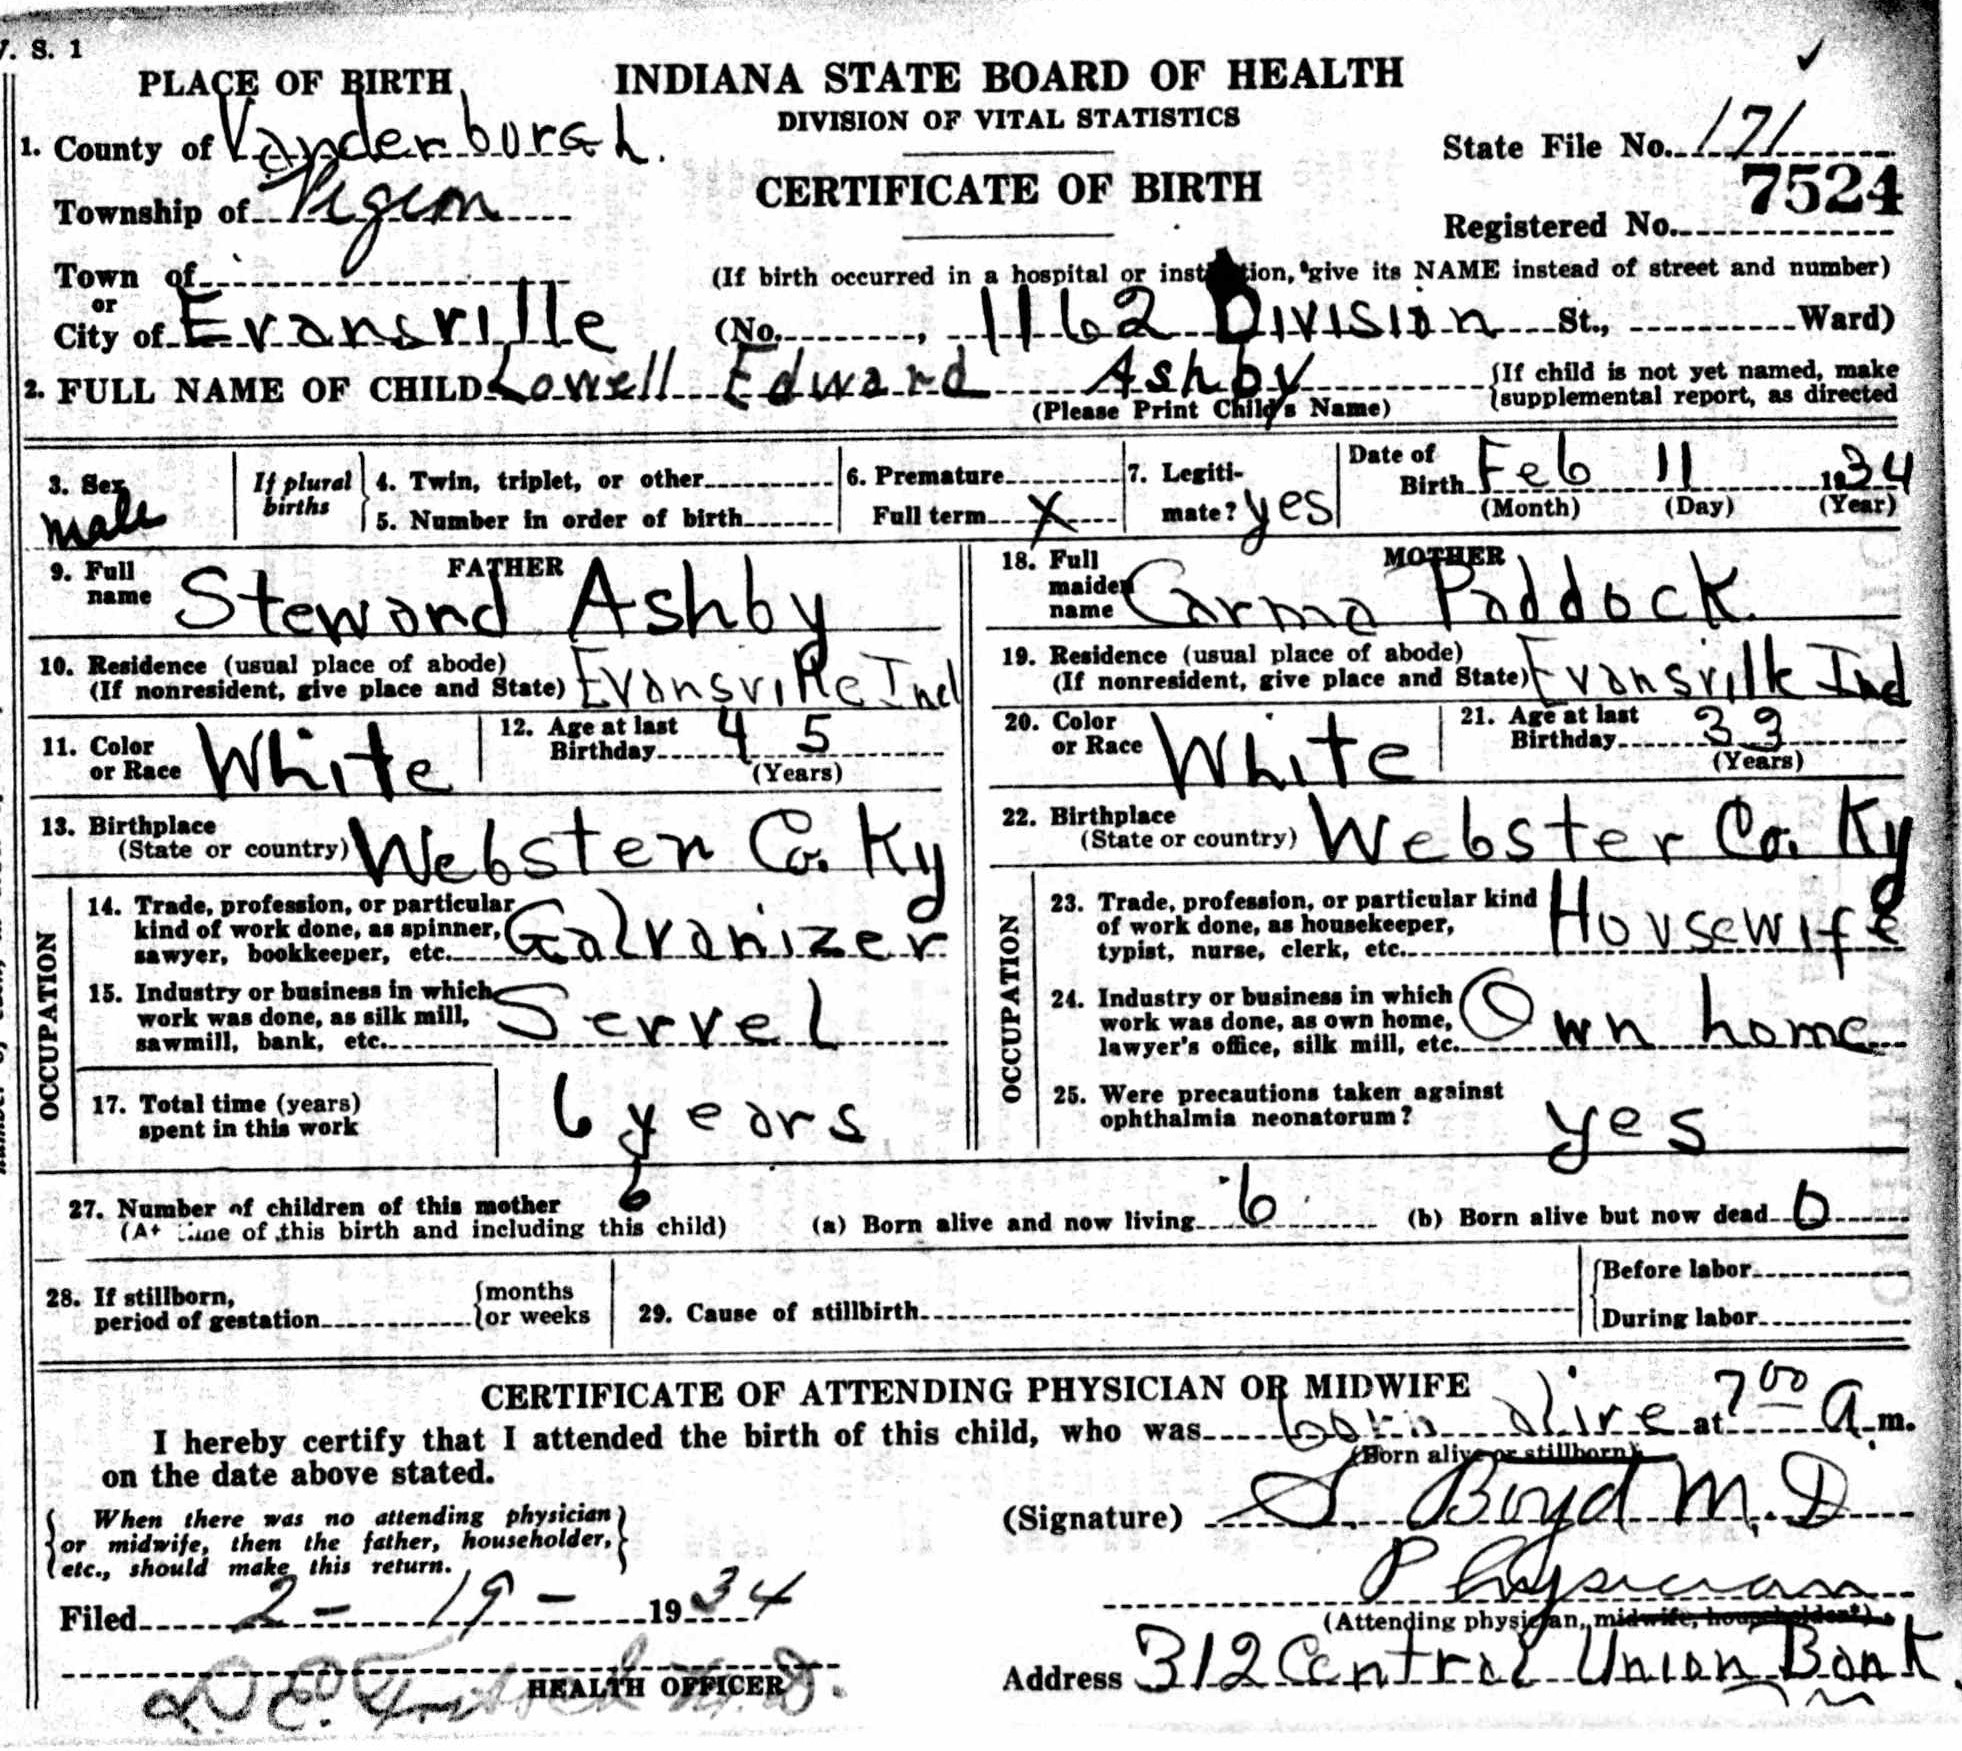 V. S. 1
PLACE OF BIRTH
INDIANA STATE BOARD OF HEALTH
DIVISION OF VITAL STATISTICS
CERTIFICATE OF BIRTH
1. County of Vanderburgh.
Township of Pigeon
Town of
or
City of Evansville
State File No. 171
7524
Registered No.
(If birth occurred in a hospital or institution, give its NAME instead of street and number)
(No. , 1162 Division St., Ward)
2. FULL NAME OF CHILD Lowell Edward Ashby
(Please Print Child's Name)
{If child is not yet named, make
supplemental report, as directed
3. Sex
Male
If plural
births
4. Twin, triplet, or other
5. Number in order of birth
6. Premature
Full term X
7. Legiti-
mate? yes
Date of
Birth Feb 11 1934
(Month) (Day) (Year)
FATHER
9. Full
name Steward Ashby
10. Residence (usual place of abode)
(If nonresident, give place and State) Evansville Ind
11. Color
or Race White
12. Age at last
Birthday 45
(Years)
13. Birthplace
(State or country) Webster Co. Ky
OCCUPATION
14. Trade, profession, or particular
kind of work done, as spinner,
sawyer, bookkeeper, etc. Galvanizer
15. Industry or business in which
work was done, as silk mill,
sawmill, bank, etc. Servel
17. Total time (years)
spent in this work 6 years
MOTHER
18. Full
maiden
name Carma Paddock
19. Residence (usual place of abode)
(If nonresident, give place and State) Evansville Ind
20. Color
or Race White
21. Age at last
Birthday 33
(Years)
22. Birthplace
(State or country) Webster Co. Ky
OCCUPATION
23. Trade, profession, or particular kind
of work done, as housekeeper,
typist, nurse, clerk, etc. Housewife
24. Industry or business in which
work was done, as own home,
lawyer's office, silk mill, etc. Own home
25. Were precautions taken against
ophthalmia neonatorum? yes
27. Number of children of this mother 6
(At time of this birth and including this child)
(a) Born alive and now living 6
(b) Born alive but now dead 0
28. If stillborn,
period of gestation
{months
or weeks
29. Cause of stillbirth
{Before labor
During labor
CERTIFICATE OF ATTENDING PHYSICIAN OR MIDWIFE
I hereby certify that I attended the birth of this child, who was born alive at 7 00 A. m.
(Born alive or stillborn)
on the date above stated.
{When there was no attending physician
or midwife, then the father, householder,
etc., should make this return.}
Filed 2-19-1934
HEALTH OFFICER
(Signature) S. Boyd M.D
Physician
(Attending physician, midwife, householder)
Address 312 Central Union Bank